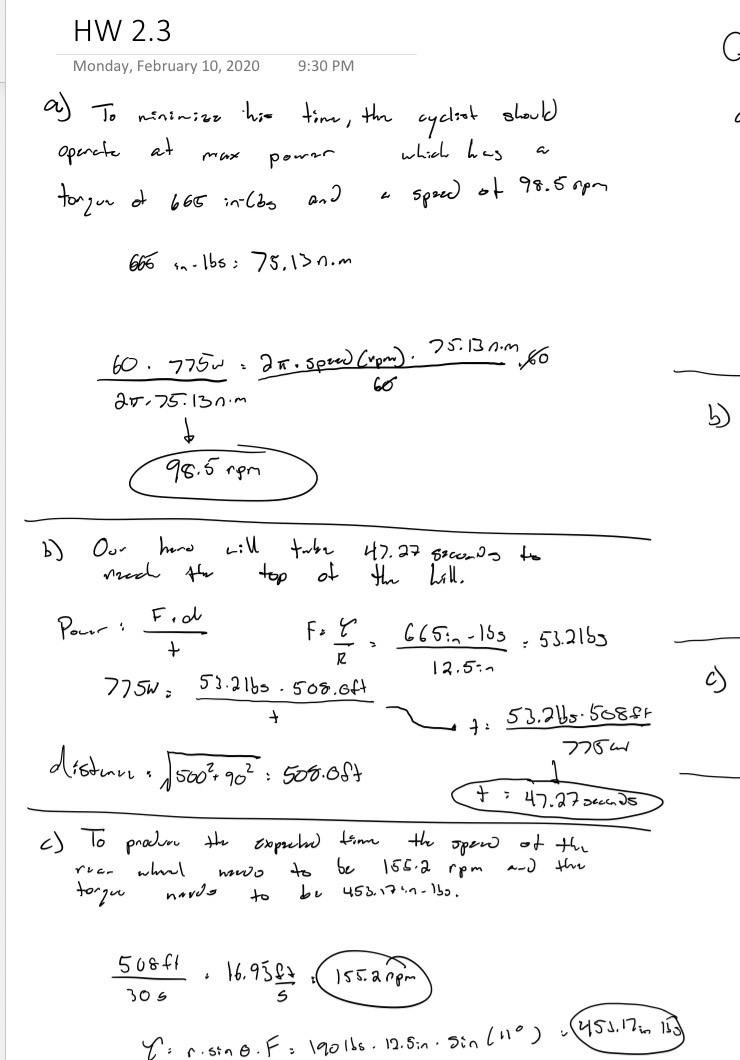 HW 2.3
Monday, February 10, 2020 9:30 PM
a) To minimize his time, the cyclist should
operate at max power which has a
torque of 665 in-lbs and a speed of 98.5 rpm
665 in-lbs = 75.13 n.m
60 · 775w = 2π · speed (rpm) · 75.13 n.m · 60
2π · 75.13 n.m 60
98.5 rpm
b) Our hero will take 47.27 seconds to
reach the top of the hill.
Power = F·d / t F = τ / R = 665 in-lbs / 12.5 in = 53.2 lbs
775W = 53.2 lbs · 508.0ft / t
t = 53.2 lbs · 508 ft / 775 w
distance = √500² + 90² = 508.0ft
t = 47.27 seconds
c) To produce the expected time the speed of the
rear wheel needs to be 155.2 rpm and the
torque needs to be 453.17 in-lbs.
508 ft / 30 s = 16.93 ft/s = 155.2 rpm
τ = r · sin θ · F = 190 lbs · 12.5 in · sin (11°) = 453.17 in lbs
b)
c)